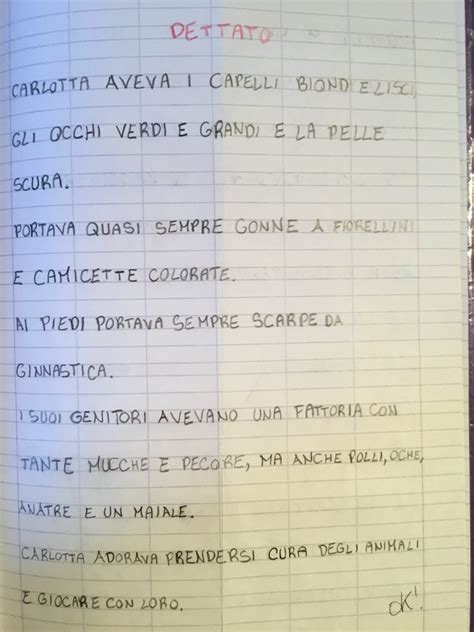 DETTATO
CARLOTTA AVEVA I CAPELLI BIONDI E LISCI,
GLI OCCHI VERDI E GRANDI E LA PELLE
SCURA.
PORTAVA QUASI SEMPRE GONNE A FIORELLINI
E CAMICETTE COLORATE.
AI PIEDI PORTAVA SEMPRE SCARPE DA
GINNASTICA.
I SUOI GENITORI AVEVANO UNA FATTORIA CON
TANTE MUCCHE E PECORE, MA ANCHE POLLI, OCHE,
ANATRE E UN MAIALE.
CARLOTTA ADORAVA PRENDERSI CURA DEGLI ANIMALI
E GIOCARE CON LORO.
OK!